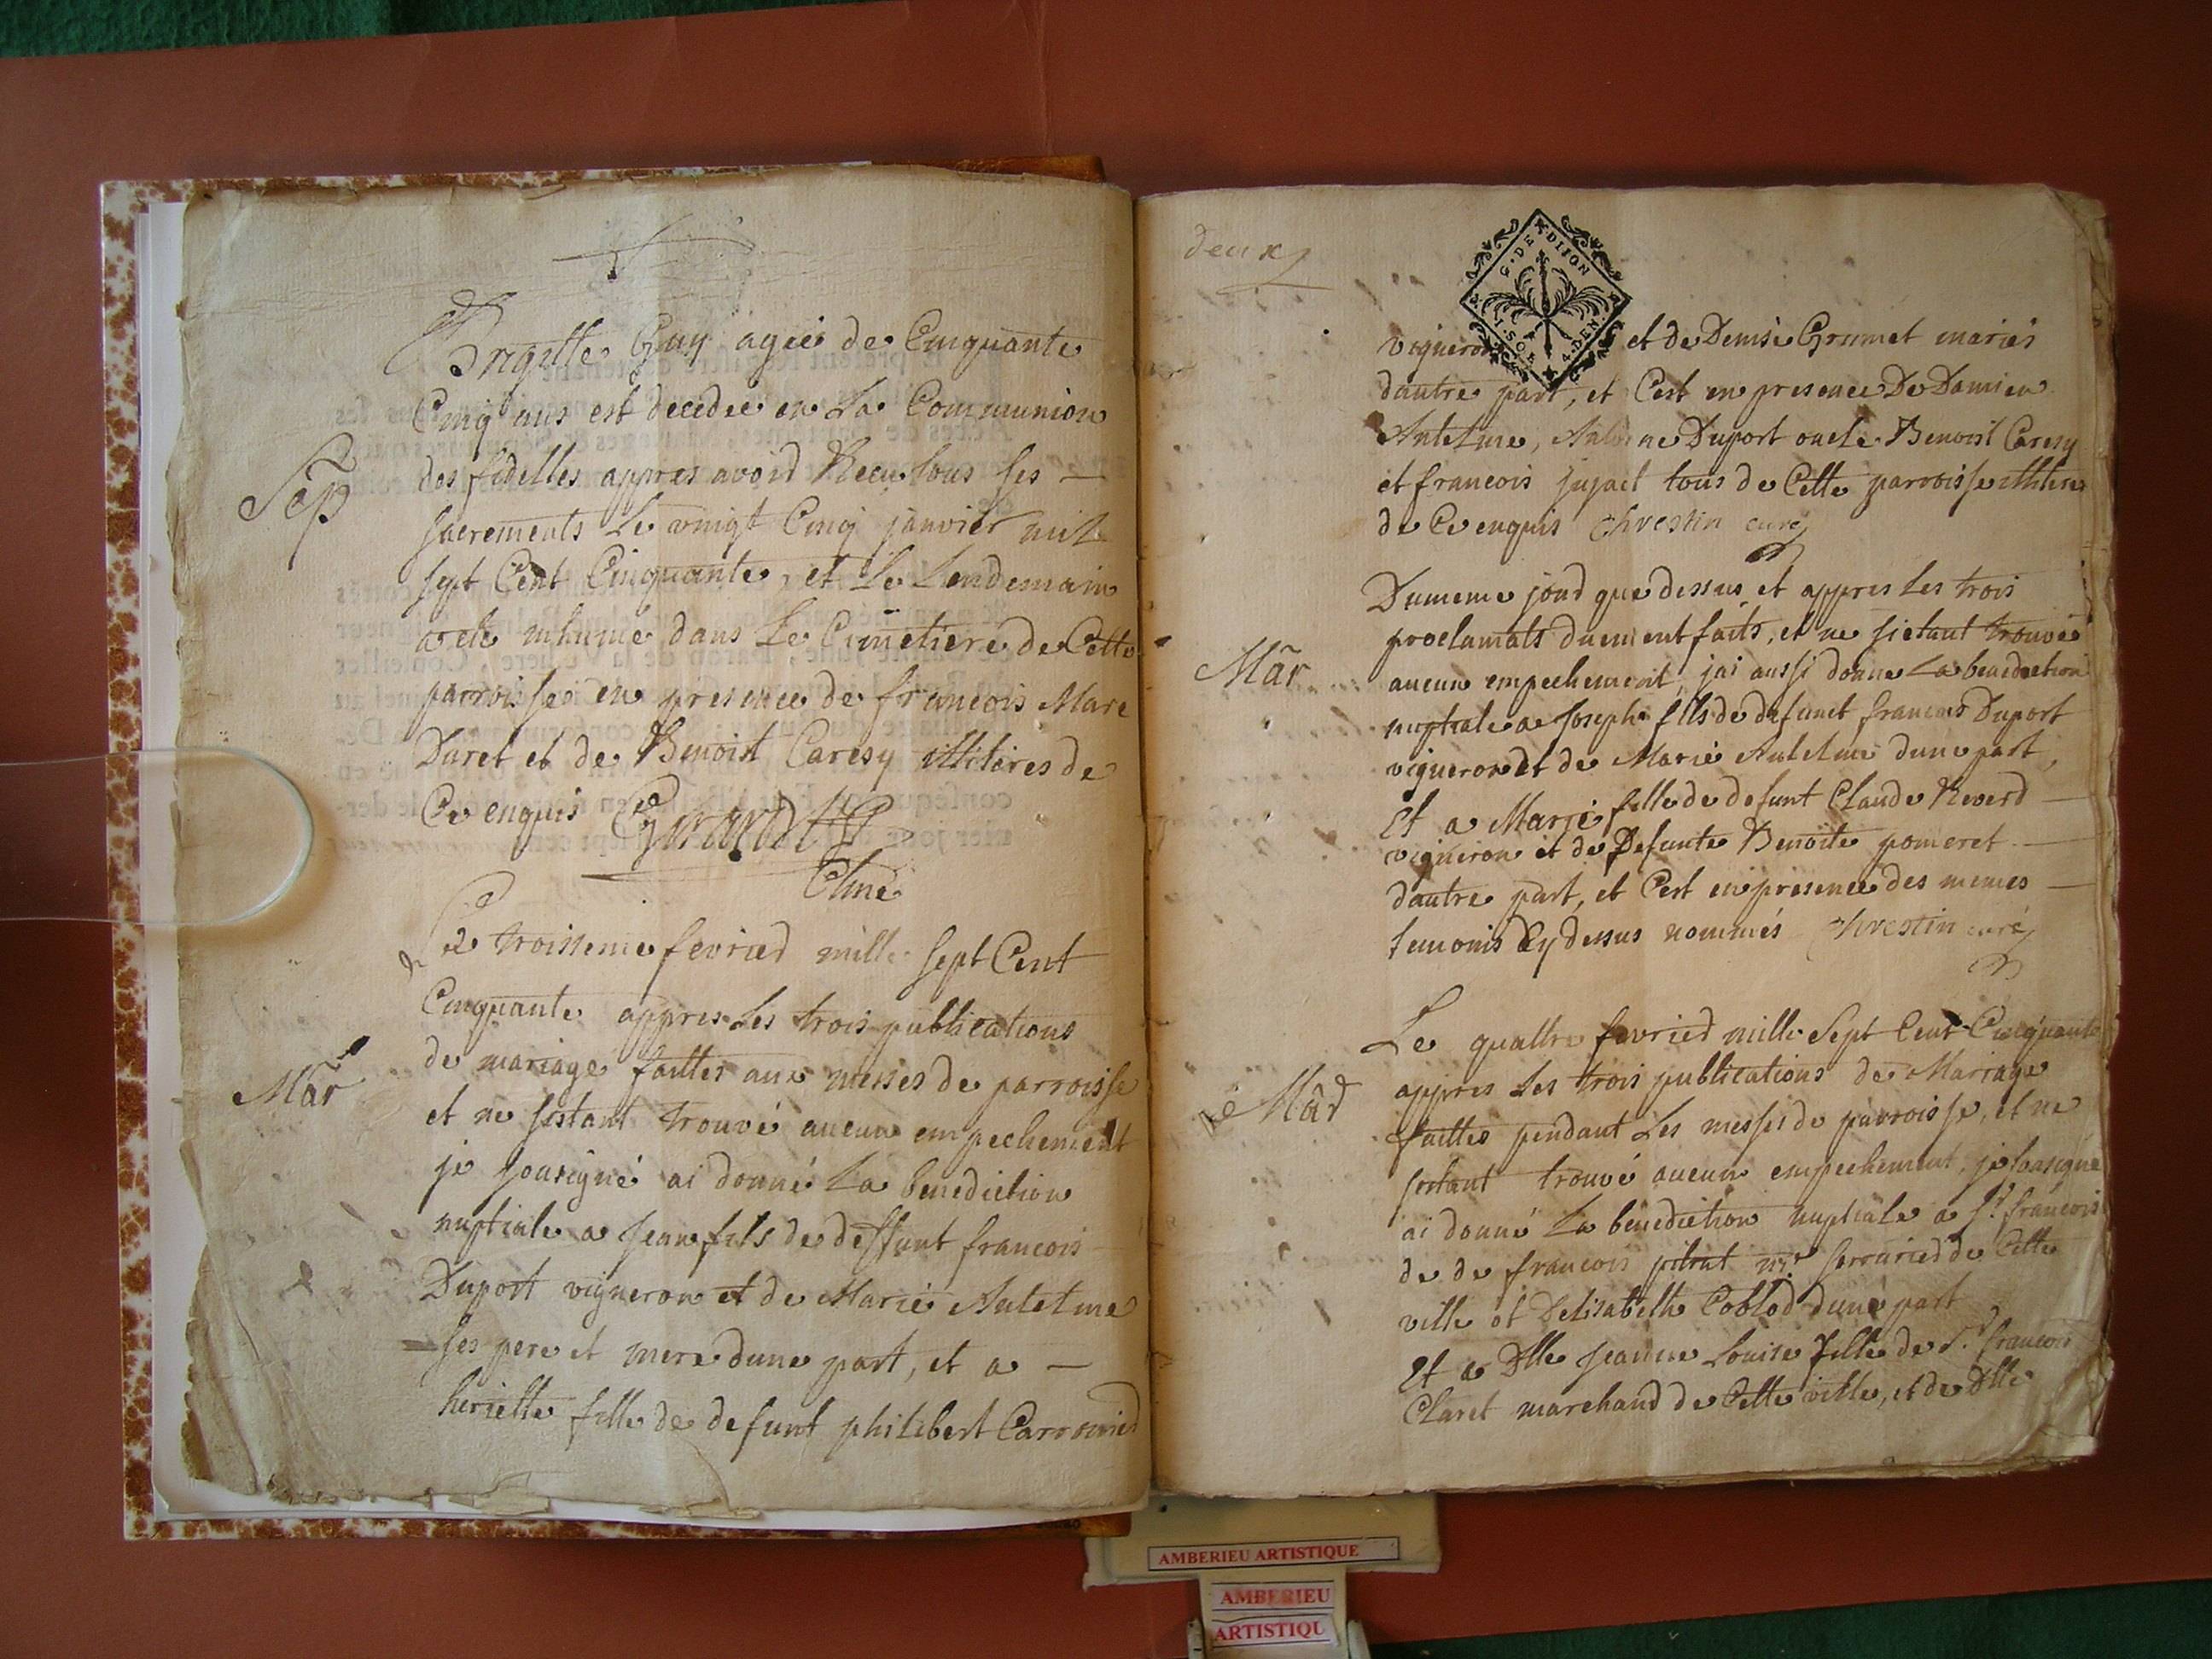 Sep
Brigitte Guy agée de Cinquante
Cinq ans est decedée en La Communion
des fidelles appres avoir Recu tous ses —
sacrements Le vingt Cinq janvier mil
sept Cent Cinquante, et Le Lendemain
a ete inhumé dans Le Cimetiere de Cette
parroisse en presence de francois Marc
Duret et de Benoist Caresy illiteres de
Ce enquis
Curé
Mar
Le troisieme fevrier mille sept Cent
Cinquante appres Les trois publications
de mariage faittes aux messes de parroisse
et ne sestant trouvé aucun empechement
je sousigné ai donné La benediction
nuptiale a Jean fils de deffunt francois
Duport vigneron et de Marie Antelme
ses pere et mere dune part, et a —
heriette fille de defunt philibert Carronier
deux
G. DE DIJON
1. SOL 4. DEN.
vigneron et de Denise Grumet mariés
dautre part, et Cest en presence De Damien
Antelme, Antoine Duport oncle Benoist Caresy
et francois jujact tous de Cette parroisse illiteres
de Ce enquis Chrestin curé
Mar
Du meme jour que dessus et appres Les trois
proclamats duement faits, et ne sietant trouvé
aucun empechement, jai aussi donné La benediction
nuptiale a Joseph fils de defunct francois Duport
vigneron et de Marie Antelme dune part,
Et a Marie fille de defunt Claude Reverd —
vigneron et de Defunte Benoite pomeret —
dautre part, et Cest en presence des memes —
temoins Cy dessus nommés Chrestin curé
Mar
Le quattre fevrier mille Sept Cent Cinquante
appres Les trois publications de Mariage
faittes pendant Les messes de parroisse, et ne
sestant trouvé aucun empechement, je sousigné
ai donné La benediction nuptiale a Sr. francois
de de francois mr serrurier de Cette
ville et Delisabeth Coblod dune part
Et a Dlle Jeanne Louise fille de Sr. francois
Claret marchand de Cette ville, et de Dlle
AMBERIEU ARTISTIQUE
AMBERIEU
ARTISTIQU